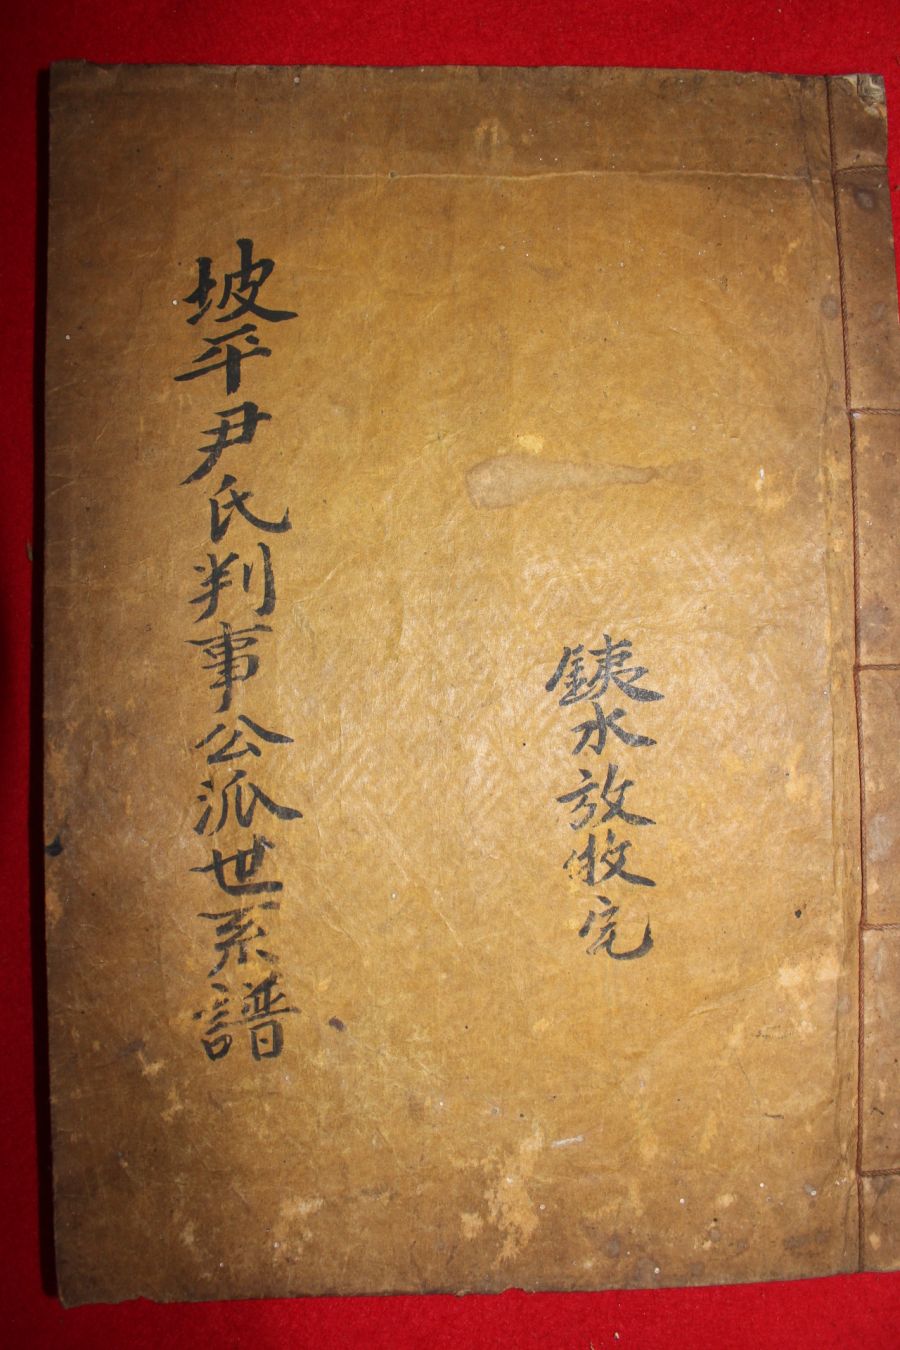 銕水放完
坡平尹氏判事公派世系譜